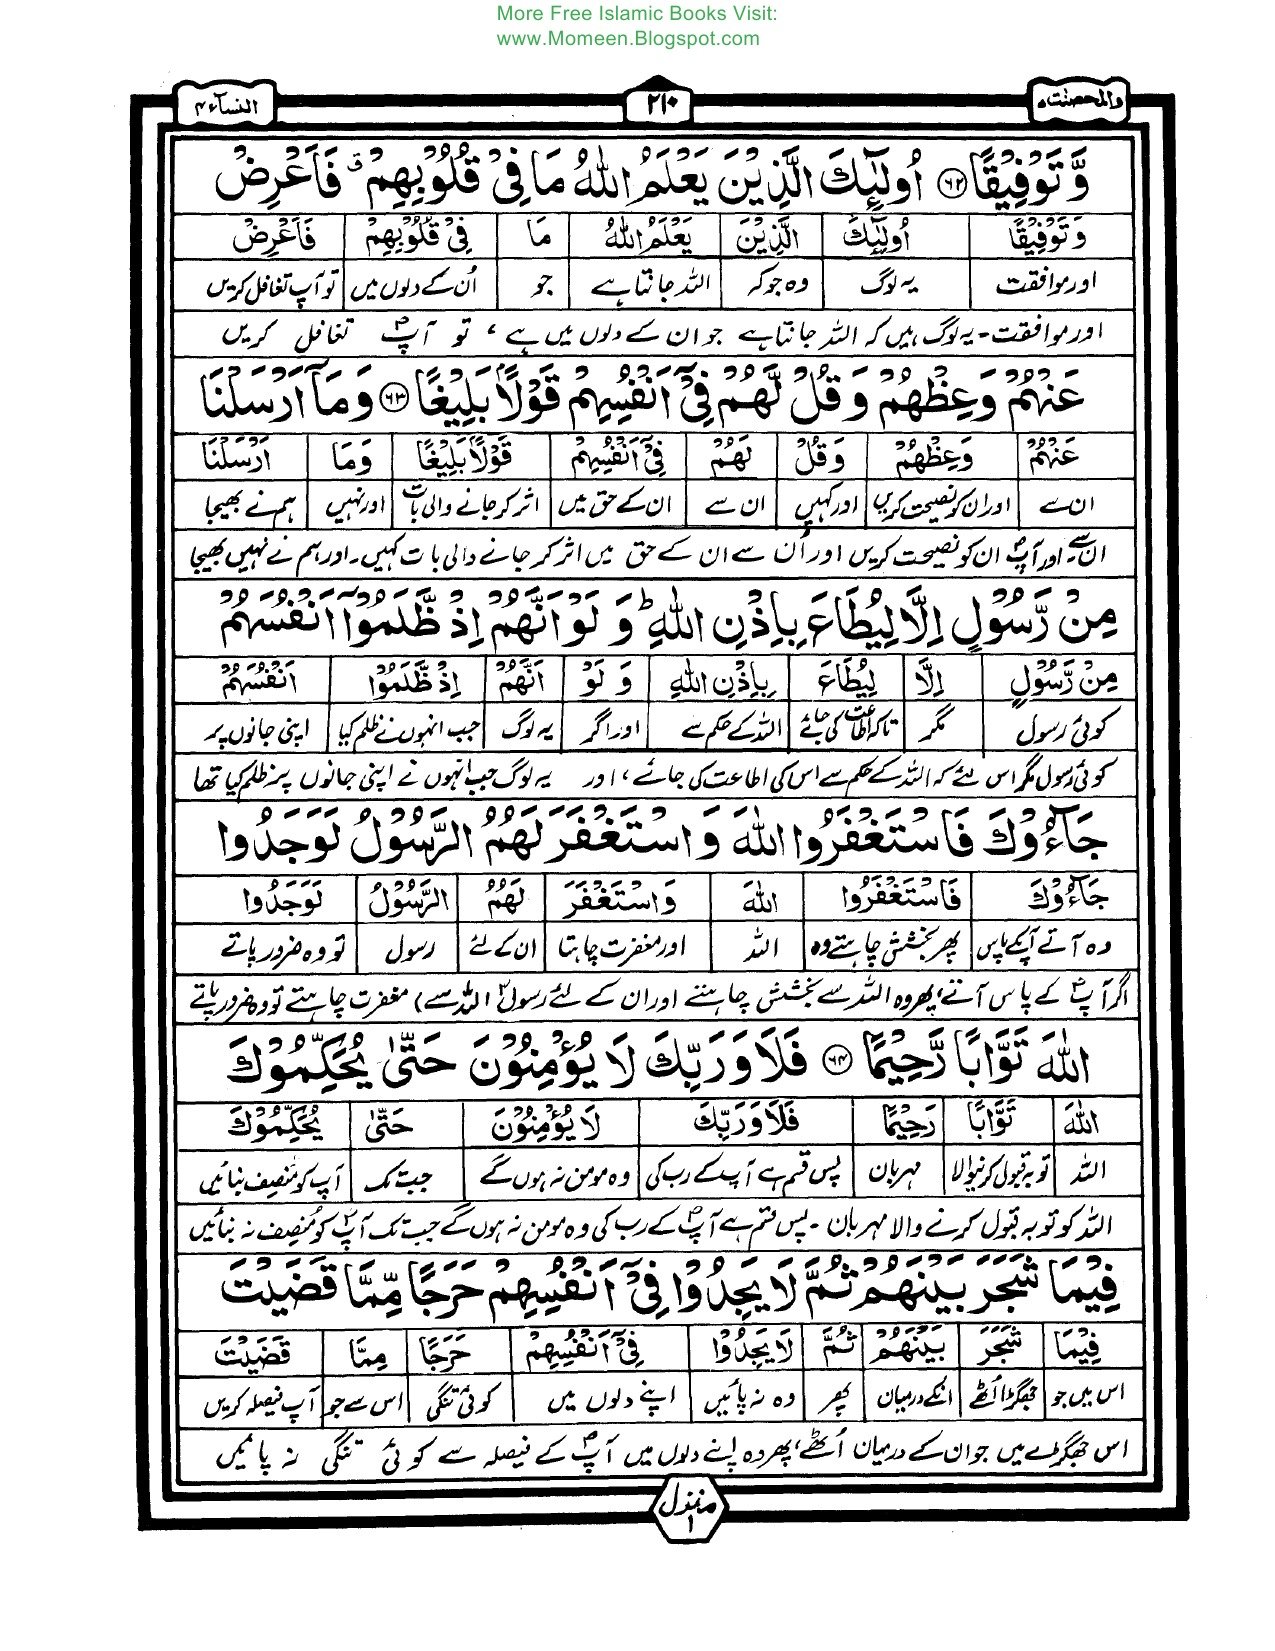 More Free Islamic Books Visit:
www.Momeen.Blogspot.com
والمحصنٰت ۵
۲۱۰
النسآء ۴
وَّتَوْفِيْقًا ﴿۶۲﴾ اُولٰٓئِكَ الَّذِيْنَ يَعْلَمُ اللّٰهُ مَا فِيْ قُلُوْبِهِمْ ۗ فَاَعْرِضْ
وَتَوْفِيْقًا اُولٰٓئِكَ الَّذِيْنَ يَعْلَمُ اللّٰهُ مَا فِيْ قُلُوْبِهِمْ فَاَعْرِضْ
اور موافقت یہ لوگ وہ جو کہ اللہ جانتا ہے جو اُن کے دلوں میں تو آپ تغافل کریں
اور موافقت۔ یہ لوگ ہیں کہ اللہ جانتا ہے جو ان کے دلوں میں ہے، تو آپؐ تغافل کریں
عَنْهُمْ وَعِظْهُمْ وَقُلْ لَّهُمْ فِيْٓ اَنْفُسِهِمْ قَوْلًا بَلِيْغًا ﴿۶۳﴾ وَمَآ اَرْسَلْنَا
عَنْهُمْ وَعِظْهُمْ وَقُلْ لَهُمْ فِيْٓ اَنْفُسِهِمْ قَوْلًا بَلِيْغًا وَمَا اَرْسَلْنَا
ان سے اور ان کو نصیحت کریں اور کہیں ان سے ان کے حق میں اثر کر جانے والی بات اور نہیں ہم نے بھیجا
ان سے۔ اور آپؐ ان کو نصیحت کریں اور اُن سے ان کے حق میں اثر کر جانے والی بات کہیں۔ اور ہم نے نہیں بھیجا
مِنْ رَّسُوْلٍ اِلَّا لِيُطَاعَ بِاِذْنِ اللّٰهِ ؕ وَلَوْ اَنَّهُمْ اِذْ ظَّلَمُوْٓا اَنْفُسَهُمْ
مِنْ رَّسُوْلٍ اِلَّا لِيُطَاعَ بِاِذْنِ اللّٰهِ وَ لَوْ اَنَّهُمْ اِذْ ظَّلَمُوْٓا اَنْفُسَهُمْ
کوئی رسول مگر تاکہ اطاعت کی جائے اللہ کے حکم سے اور اگر یہ لوگ جب انہوں نے ظلم کیا اپنی جانوں پر
کوئی رسول مگر اس لئے کہ اللہ کے حکم سے اس کی اطاعت کی جائے، اور یہ لوگ جب انہوں نے اپنی جانوں پر ظلم کیا تھا
جَآءُوْكَ فَاسْتَغْفَرُوا اللّٰهَ وَاسْتَغْفَرَ لَهُمُ الرَّسُوْلُ لَوَجَدُوا
جَآءُوْكَ فَاسْتَغْفَرُوا اللّٰهَ وَاسْتَغْفَرَ لَهُمُ الرَّسُوْلُ لَوَجَدُوا
وہ آتے آپکے پاس پھر بخشش چاہتے وہ اللہ اور مغفرت چاہتا ان کے لئے رسول تو وہ ضرور پاتے
اگر آپؐ کے پاس آتے، پھر وہ اللہ سے بخشش چاہتے اور ان کے لئے رسولؐ (اللہ سے) مغفرت چاہتے تو وہ ضرور پاتے
اللّٰهَ تَوَّابًا رَّحِيْمًا ﴿۶۴﴾ فَلَا وَرَبِّكَ لَا يُؤْمِنُوْنَ حَتّٰى يُحَكِّمُوْكَ
اللّٰهَ تَوَّابًا رَحِيْمًا فَلَا وَرَبِّكَ لَا يُؤْمِنُوْنَ حَتّٰى يُحَكِّمُوْكَ
اللہ توبہ قبول کرنیوالا مہربان پس قسم ہے آپ کے رب کی وہ مومن نہ ہوں گے جب تک آپ کو مُنصِف بنائیں
اللہ کو توبہ قبول کرنے والا مہربان۔ پس قسم ہے آپؐ کے رب کی وہ مومن نہ ہوں گے جب تک آپؐ کو مُنصِف نہ بنائیں
فِيْمَا شَجَرَ بَيْنَهُمْ ثُمَّ لَا يَجِدُوْا فِيْٓ اَنْفُسِهِمْ حَرَجًا مِّمَّا قَضَيْتَ
فِيْمَا شَجَرَ بَيْنَهُمْ ثُمَّ لَا يَجِدُوْا فِيْٓ اَنْفُسِهِمْ حَرَجًا مِمَّا قَضَيْتَ
اس میں جو جھگڑا اُٹھے انکے درمیان پھر وہ نہ پائیں اپنے دلوں میں کوئی تنگی اس سے جو آپ فیصلہ کریں
اس جھگڑے میں جو ان کے درمیان اُٹھے، پھر وہ اپنے دلوں میں آپؐ کے فیصلہ سے کوئی تنگی نہ پائیں
منزل ۱